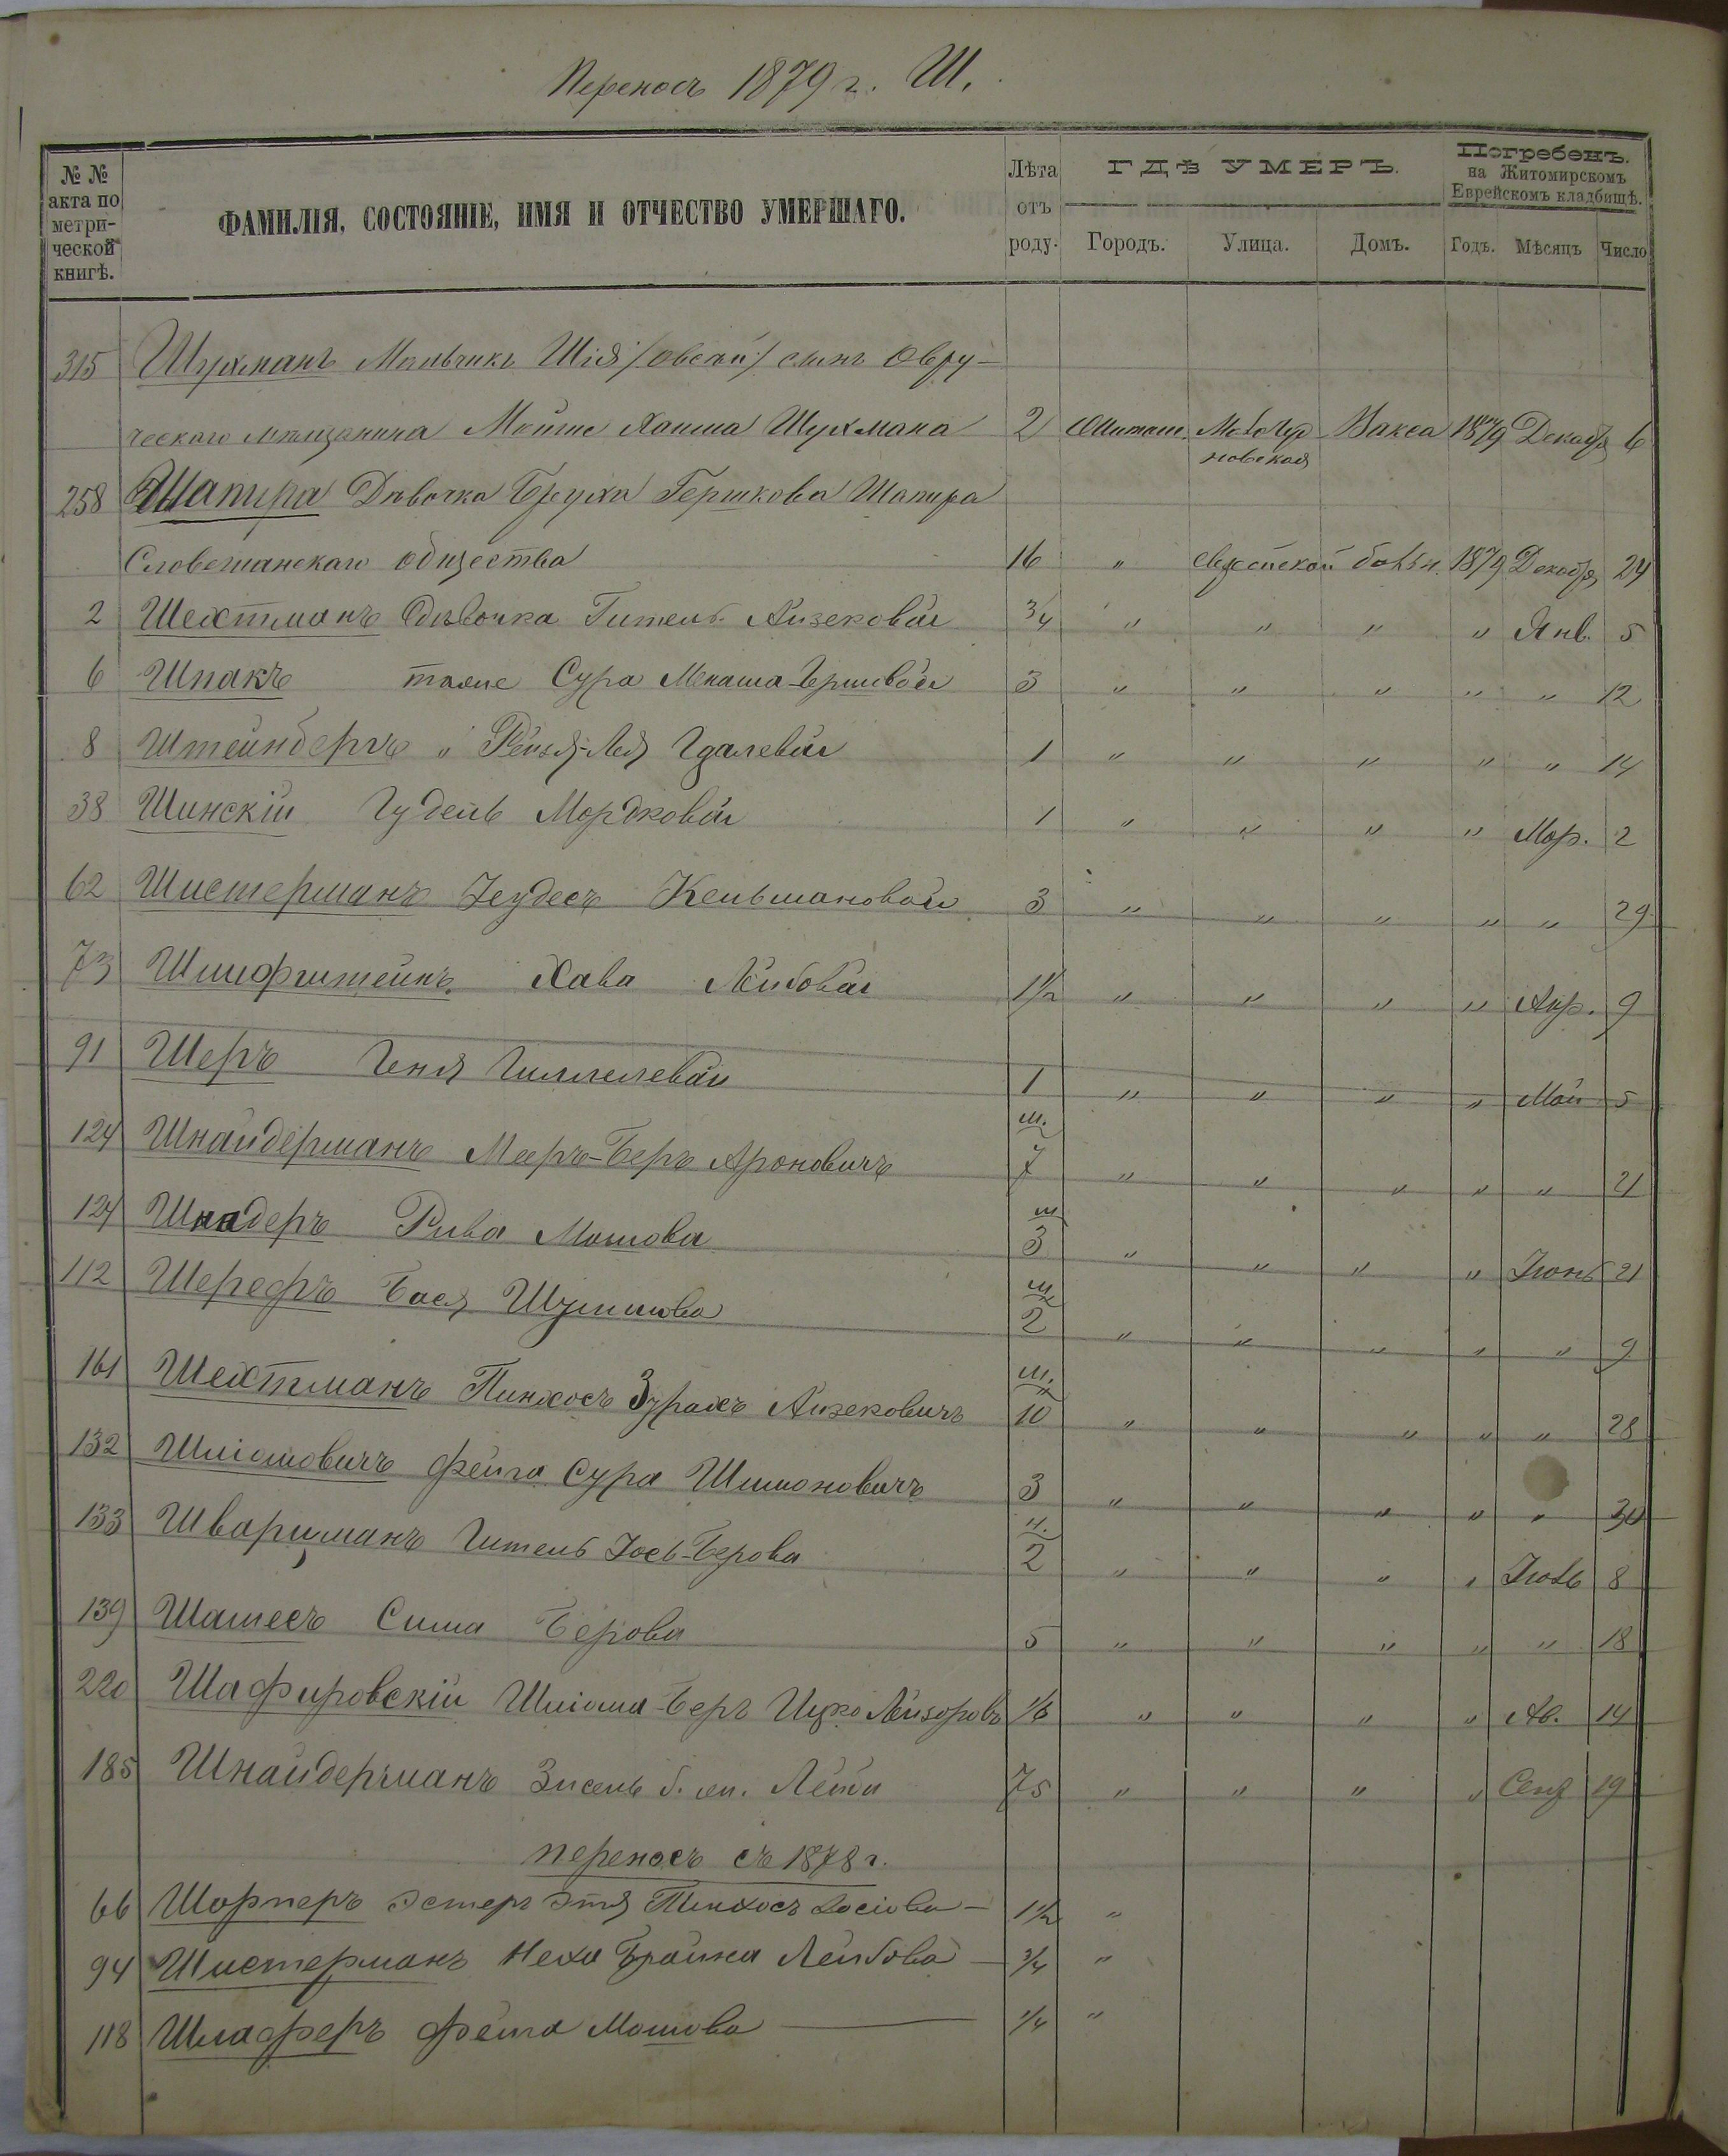 Переносъ 1879 г. Ш.
№ № акта по метри-ческой книгѣ.
ФАМИЛІЯ, СОСТОЯНІЕ, ИМЯ И ОТЧЕСТВО УМЕРШАГО.
Лѣта отъ роду.
ГДѢ УМЕРЪ.
Городъ. Улица. Домъ.
Погребенъ.
на Житомирскомъ
Еврейскомъ кладбищѣ.
Годъ. Мѣсяцъ Число
315 Шухманъ Мальчикъ Шія /Овсей/ сынъ Овру-
ческаго мѣщанина Мойше Хаима Шухмана 2 Вакса 1879 Декабр. 6
новская
258 Шапира Дѣвочка Бруха Гершкова Шапира
Словечанскаго общества 16 " еврейской больн. 1879 Декабр. 24
2 Шехтманъ Дѣвочка Гитель Айзековая 3/4 " " " " Янв. 5
6 Шпакъ тоже Сура Менаша-Гершковая 3 " " " " " 12
8 Штейнберъ " Рейзя-Лея Гдалевая 1 " " " " " 14
38 Шинскій Гудель Мордковая 1 " " " " Мар. 2
62 Шистерманъ Зеудесъ Кельмановая 3 " " " " " 29
73 Шлифштейнъ Хава Лейбовая 1 1/2 " " " " Апр. 9
91 Шеръ Геня Гиллелевая 1 " " " " Май 5
124 Шнайдерманъ Мееръ-Беръ Ароновичъ м. 7 " " " " " 21
124 Шнадеръ Рива Мошова м. 3 " " " " Іюнь 21
112 Шерефъ Бася Шулимова м. 2 " " " " " 9
161 Шехтманъ Пинхосъ Зурахъ Айзековичъ м. 10 " " " " " 28
132 Шліомовичъ Фейга Сура Шимоновичъ 3 " " " " " 30
133 Шварцманъ Гитель Іось-Берова н. 2 " " " " Іюль 8
139 Шатесъ Сима Берова 5 " " " " " 18
220 Шафировскій Шліома-Беръ Ицко Лейзоровъ 1/6 " " " " Ав. 14
185 Шнайдерманъ Зисель Лейба 75 " " " " Сент 19
переносъ съ 1878 г.
66 Шорперъ Эстеръ Этя Пинхосъ Іосіова 1 1/2 "
94 Шистерманъ Неха Брайна Лейбова 3/4 "
118 Шлаферъ Фейга Мошова 1/4 "